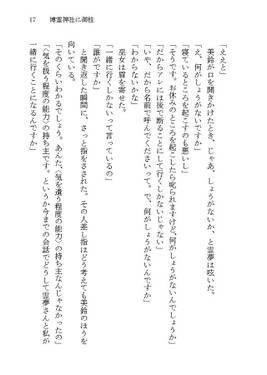 17　博霊神社に御柱
「ええと」
美鈴が口を開きかけたとき、じゃあ、しょうがないか、と霊夢は呟いた。
「え、何がしょうがないんですか」
「寝ているところを起こすのも悪いし」
「そうです。お休みのところを起こしたら叱られますけど、何がしょうがないんでしょうか」
「だからアレには後で断ることにして行くしかないじゃない」
「いや、だから名前で呼んでくださいって。で、何がしょうがないんですか」
「わからないか」
巫女は眉を寄せた。
「一緒に行くしかないって言っているの」
「誰がですか」
と聞き返した瞬間に、さっと指をさされた。その人差し指はどう考えても美鈴のほうを
向いている。
「そのくらいわかるでしょう。あんた、〈気を遣う程度の能力〉の持ち主なんじゃなかったの」
「〈気を扱う程度の能力〉の持ち主です。というか今までの会話でどうして霊夢さんと私が
一緒に行くことになるんですか」